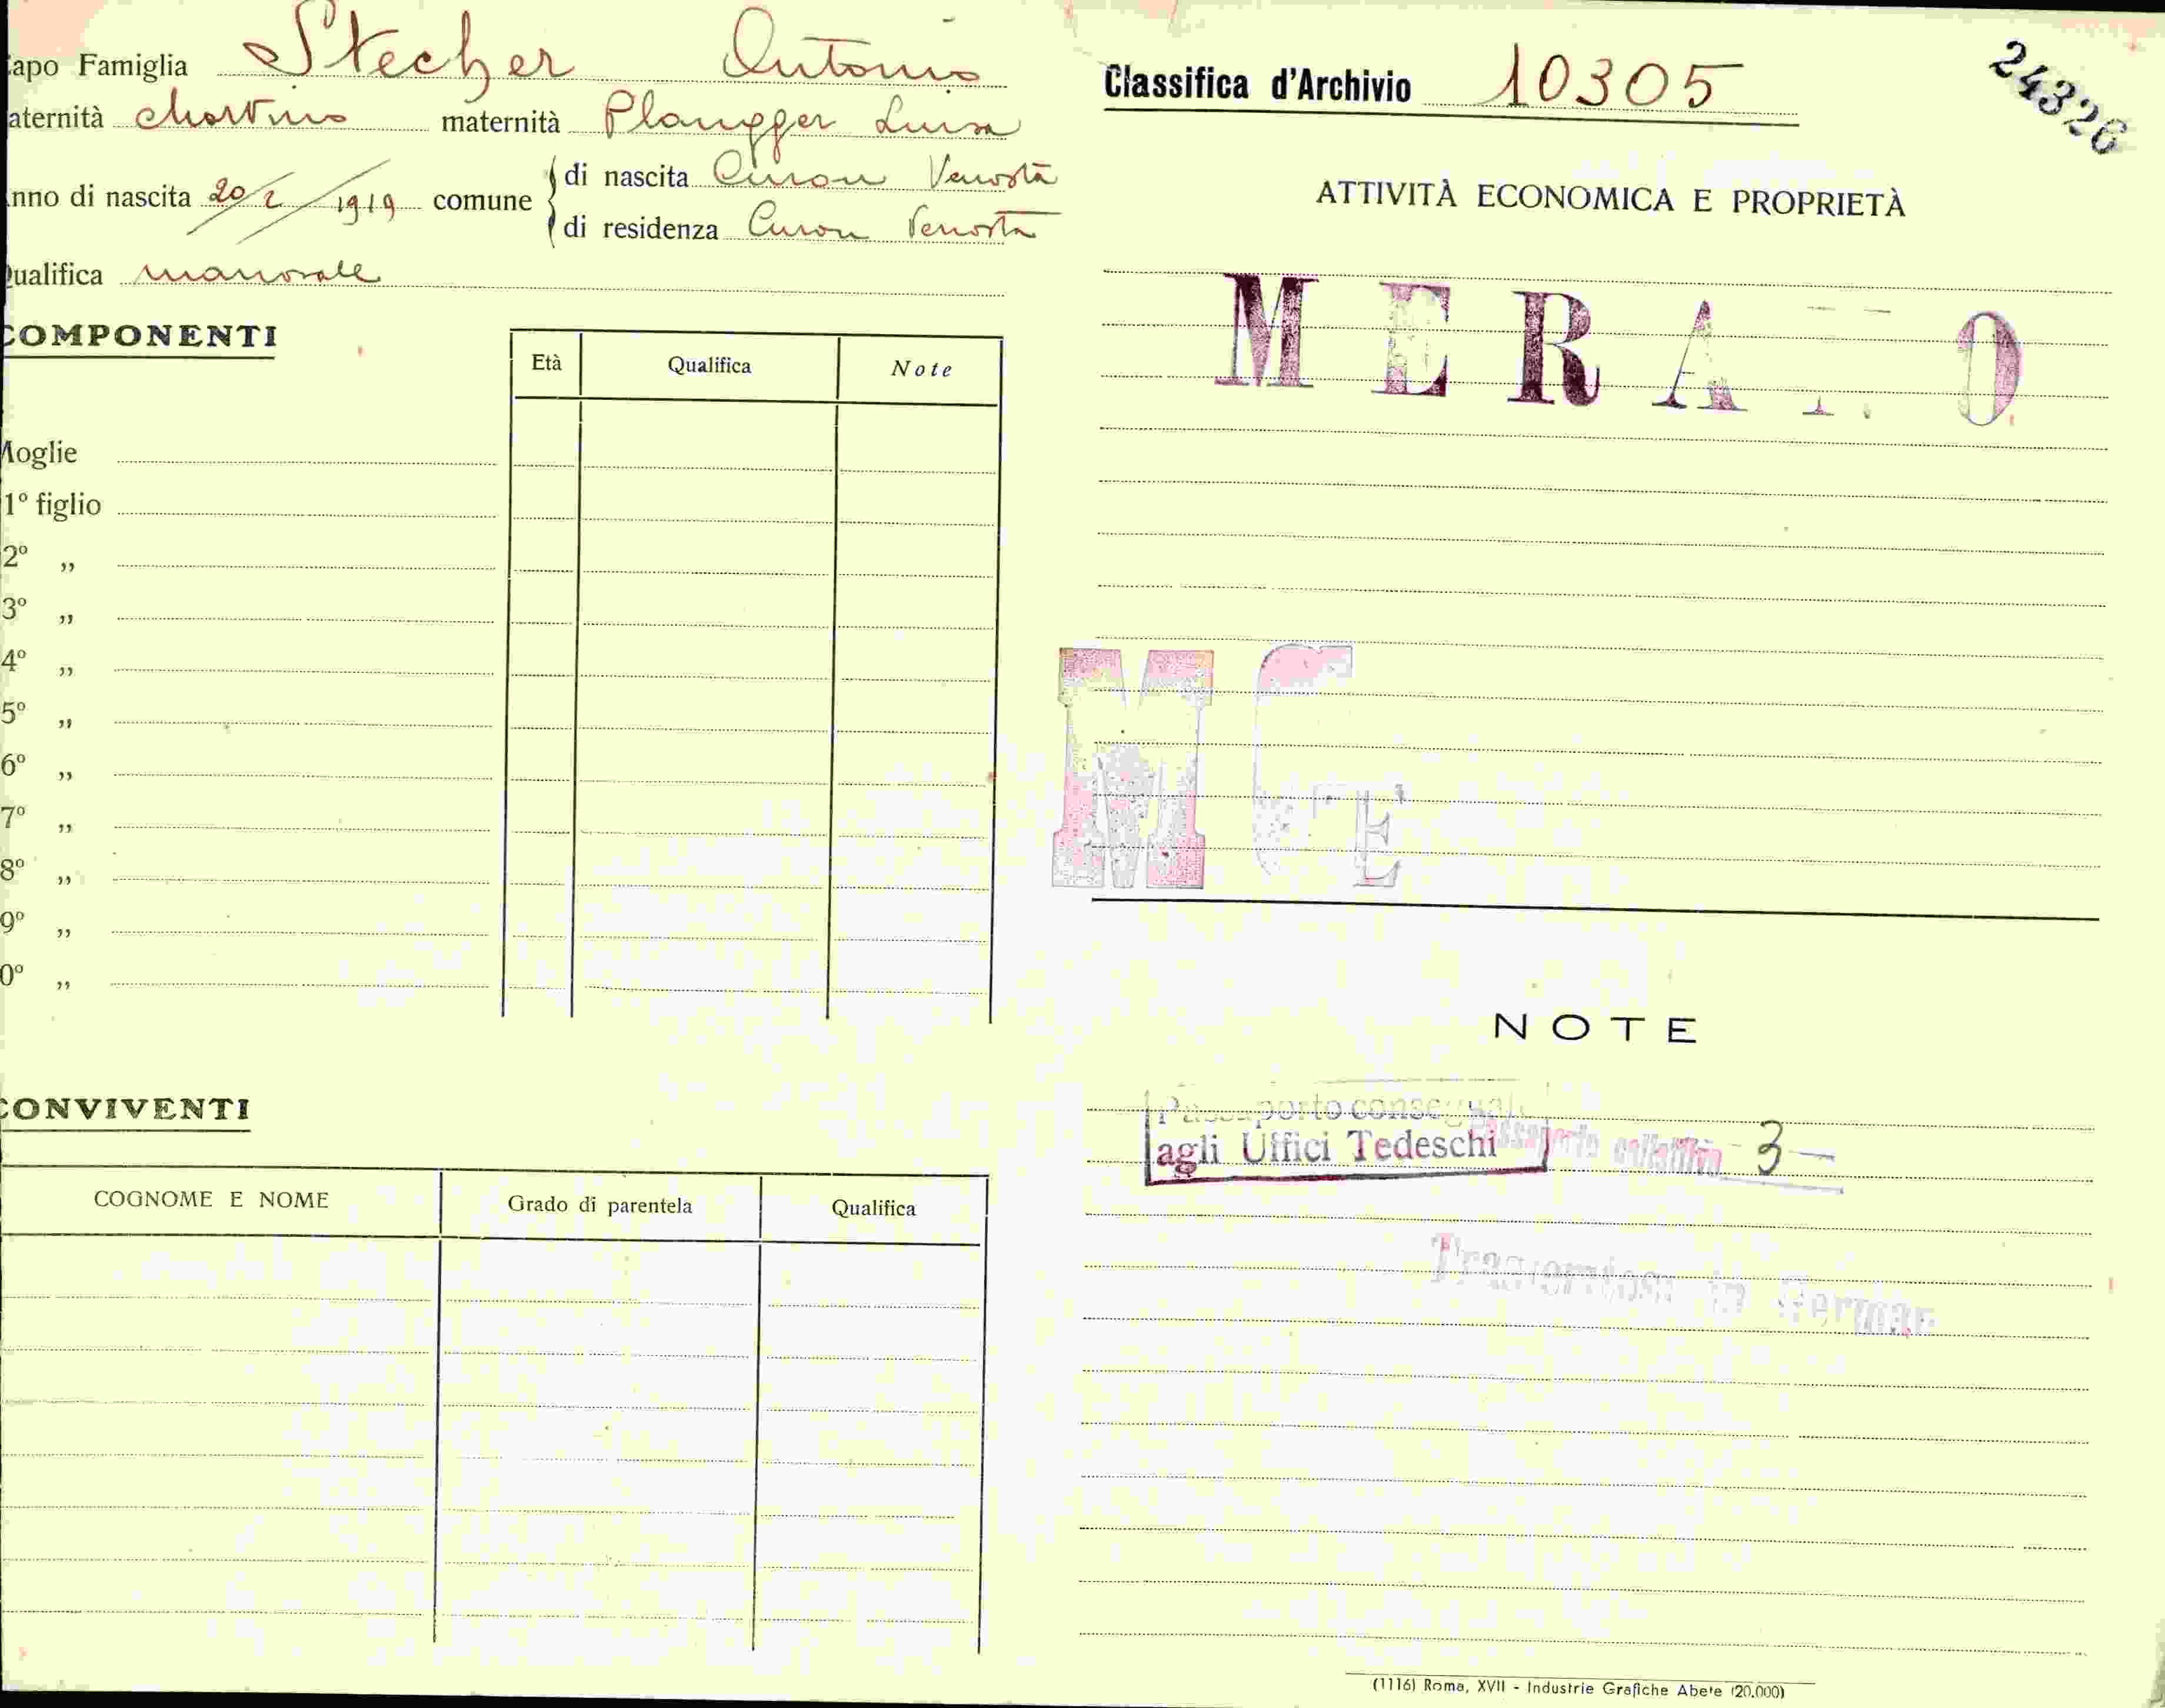 apo Famiglia Stecher Antonio
aternità Martino maternità Plangger Luisa
nno di nascita 20/2/1919 comune
di nascita Curon Venosta
di residenza Curon Venosta
ualifica manovale
COMPONENTI
Età Qualifica Note
Moglie
1º figlio
2º „
3º „
4º „
5º „
6º „
7º „
8º „
9º „
0º „
CONVIVENTI
COGNOME E NOME Grado di parentela Qualifica
Classifica d'Archivio 10305
24326
ATTIVITÀ ECONOMICA E PROPRIETÀ
MERANO
M
E
NOTE
agli Uffici Tedeschi
3
(1116) Roma, XVII - Industrie Grafiche Abete (20.000)